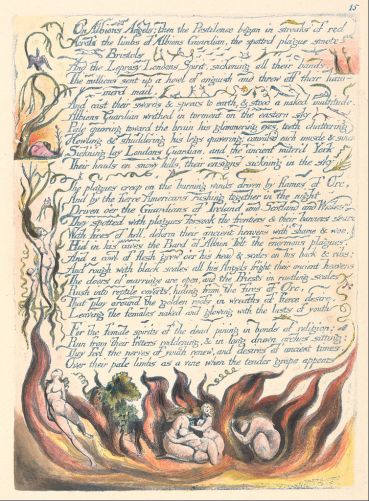 15
On Albions Angels; then the Pestilence began in streaks of red
Across the limbs of Albions Guardian, the spotted plague smote
Bristols
And the Leprosy Londons Spirit, sickening all their bands:
The millions sent up a howl of anguish and threw off their ham-
-merd mail,
And cast their swords & spears to earth, & stood a naked multitude.
Albions Guardian writhed in torment on the eastern sky
Pale quivring toward the brain his glimmering eyes, teeth chattering
Howling & shuddering his legs quivering; convuls'd each muscle & sinew
Sick'ning lay Londons Guardian, and the ancient miter'd York
Their heads on snowy hills, their ensigns sick'ning in the sky
The plagues creep on the burning winds driven by flames of Orc,
And by the fierce Americans rushing together in the night
Driven o'er the Guardians of Ireland and Scotland and Wales
They spotted with plagues forsook the frontiers & their banners seard
With fires of hell, deform their ancient heavens with shame & woe.
Hid in his caves the Bard of Albion felt the enormous plagues.
And a cowl of flesh grew o'er his head & scales on his back & ribs;
And rough with black scales all his Angels fright their ancient heavens
The doors of marriage are open, and the Priests in rustling scales
Rush into reptile coverts, hiding from the fires of Orc,
That play around the golden roofs in wreaths of fierce desire,
Leaving the females naked and glowing with the lusts of youth
For the female spirits of the dead pining in bonds of religion;
Run from their fetters reddening, & in long drawn arches sitting:
They feel the nerves of youth renew, and desires of ancient times,
Over their pale limbs as a vine when the tender grape appears